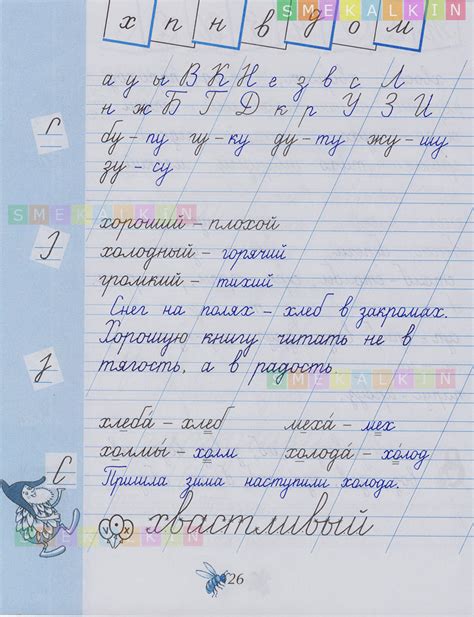 SMEKALKIN
х п н в д о м
а у ы В К Н е з в с Л
н ж Б Г Д к р У З И
бу - пу гу - ку ду - ту жу - шу
зу - су
SMEKALKIN
хороший – плохой
холодный – горячий
громкий – тихий
Снег на полях – хлеб в закромах.
Хорошую книгу читать не в
тягость, а в радость
SMEKALKIN
хлеба́ – хлеб меха́ – мех
холмы́ – холм холода́ – хо́лод
Пришла зима наступили холода.
хвастливый
SMEKALKIN
26